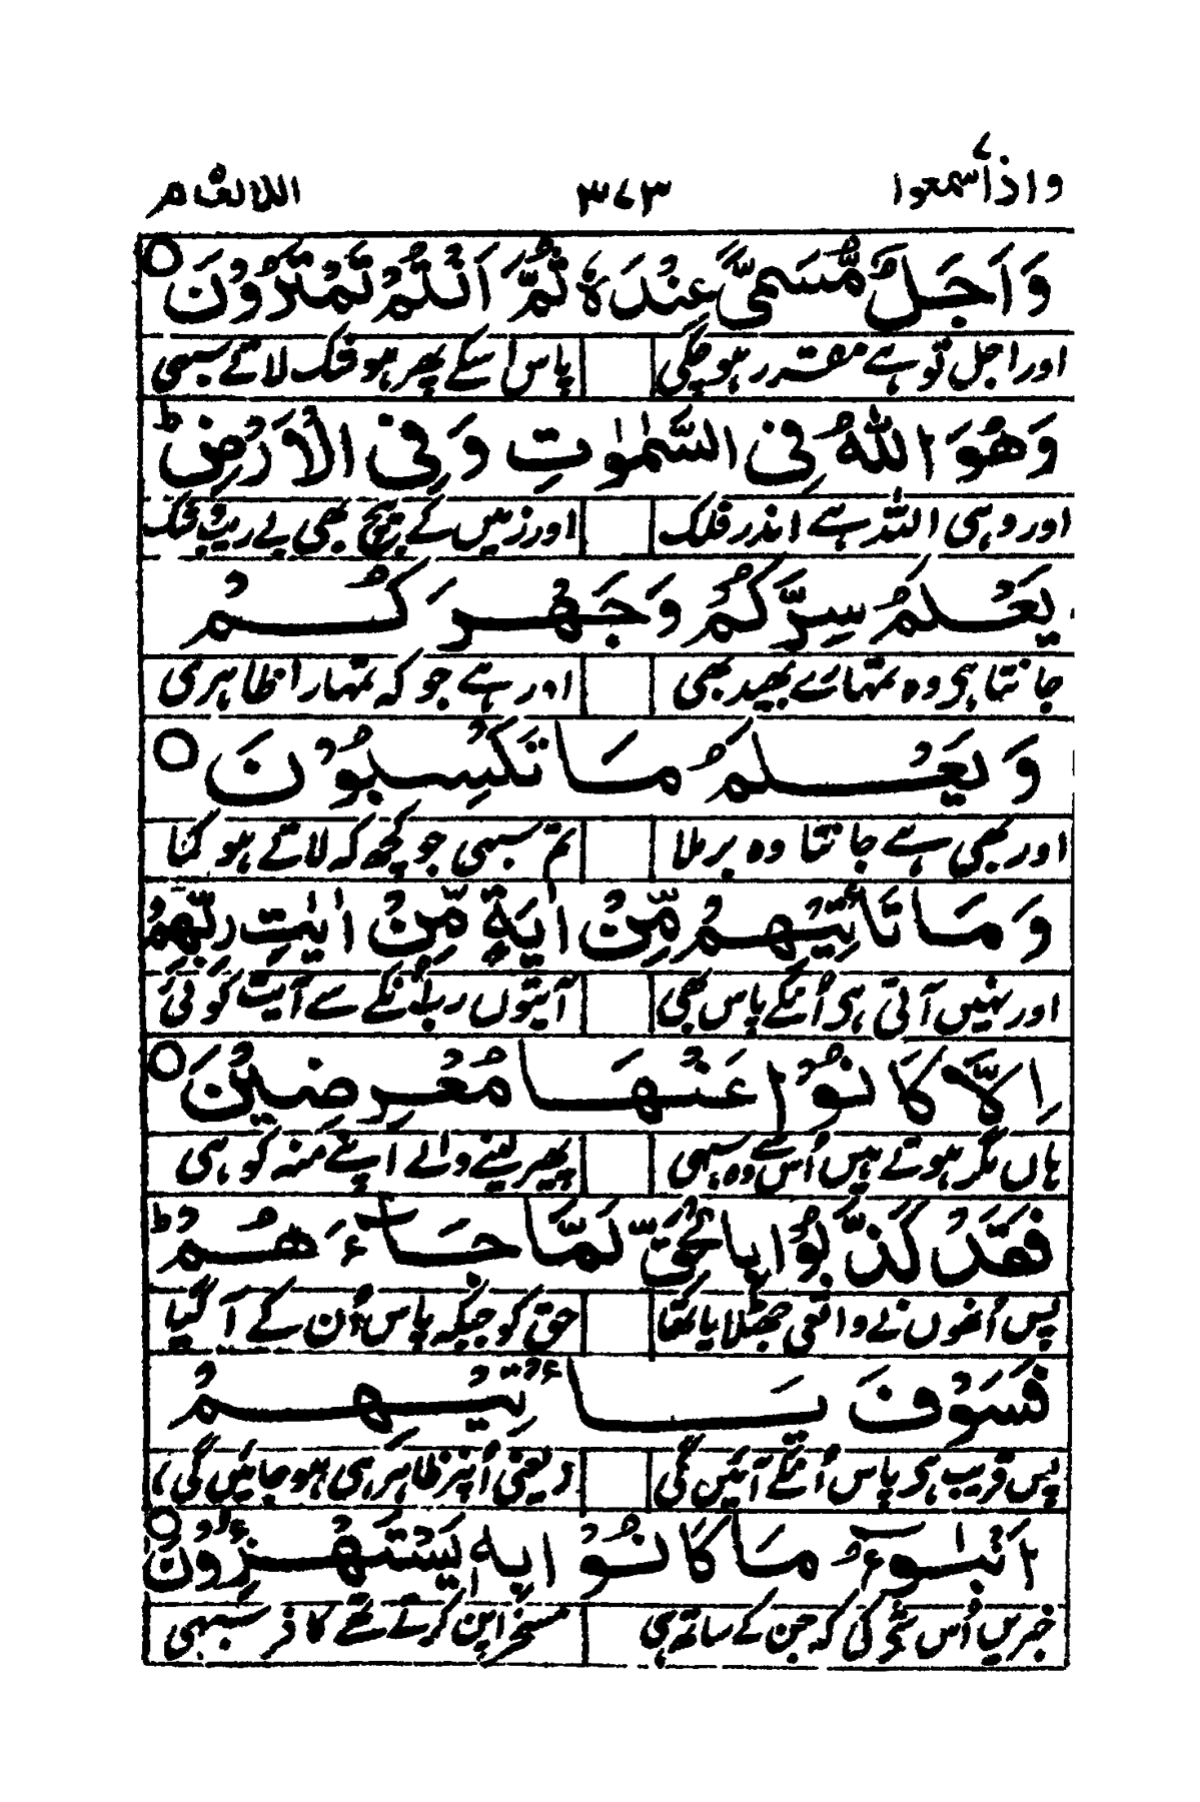 واذا سمعوا ٧ ٣٧٣ الانعام
وَاَجَلٌ مُّسَمًّى عِنْدَهٗ ثُمَّ اَنْتُمْ تَمْتَرُوْنَ ○
اور اجل تو ہے مقدر ہو چکی پاس اسکے پھر ہو شک لاتے سبھی
وَهُوَ اللّٰهُ فِى السَّمٰوٰتِ وَفِى الْاَرْضِ ؕ
اور وہی اللہ ہے اندر فلک اور زمیں کے بیچ بھی بے ریب شک
يَعْلَمُ سِرَّكُمْ وَجَهْرَكُمْ
جانتا ہی وہ تمہارے بھید بھی اور ہے جو کہ تمہارا ظاہری
وَيَعْلَمُ مَا تَكْسِبُوْنَ ○
اور بھی ہے جانتا وہ برملا تم سبھی جو کچھ کہ لاتے ہو کما
وَمَا تَاْتِيْهِمْ مِّنْ اٰيَةٍ مِّنْ اٰيٰتِ رَبِّهِمْ
اور نہیں آتی ہی اُنکے پاس بھی آیتوں رب اُنکے سے آیت کوئی
اِلَّا كَانُوْا عَنْهَا مُعْرِضِيْنَ ○
ہاں مگر ہوتے ہیں اُس سے وہ سبھی پھیر لینے والے اپنے منہ کو ہی
فَقَدْ كَذَّبُوْا بِالْحَقِّ لَمَّا جَآءَهُمْ ؕ
پس اُنھوں نے واقعی جھٹلایا تھا حق کو جبکہ پاس اُن کے آگیا
فَسَوْفَ يَاْتِيْهِمْ
پس قریب ہی پاس اُنکے آئیں گی (یعنی اُنپر ظاہر ہی ہو جائیں گی)
اَنْۢبٰٓؤُا مَا كَانُوْا بِهٖ يَسْتَهْزِءُوْنَ ○
خبریں اُس شے کی کہ جن کے ساتھ ہی مسخراپن کرتے تھے کافر سبھی